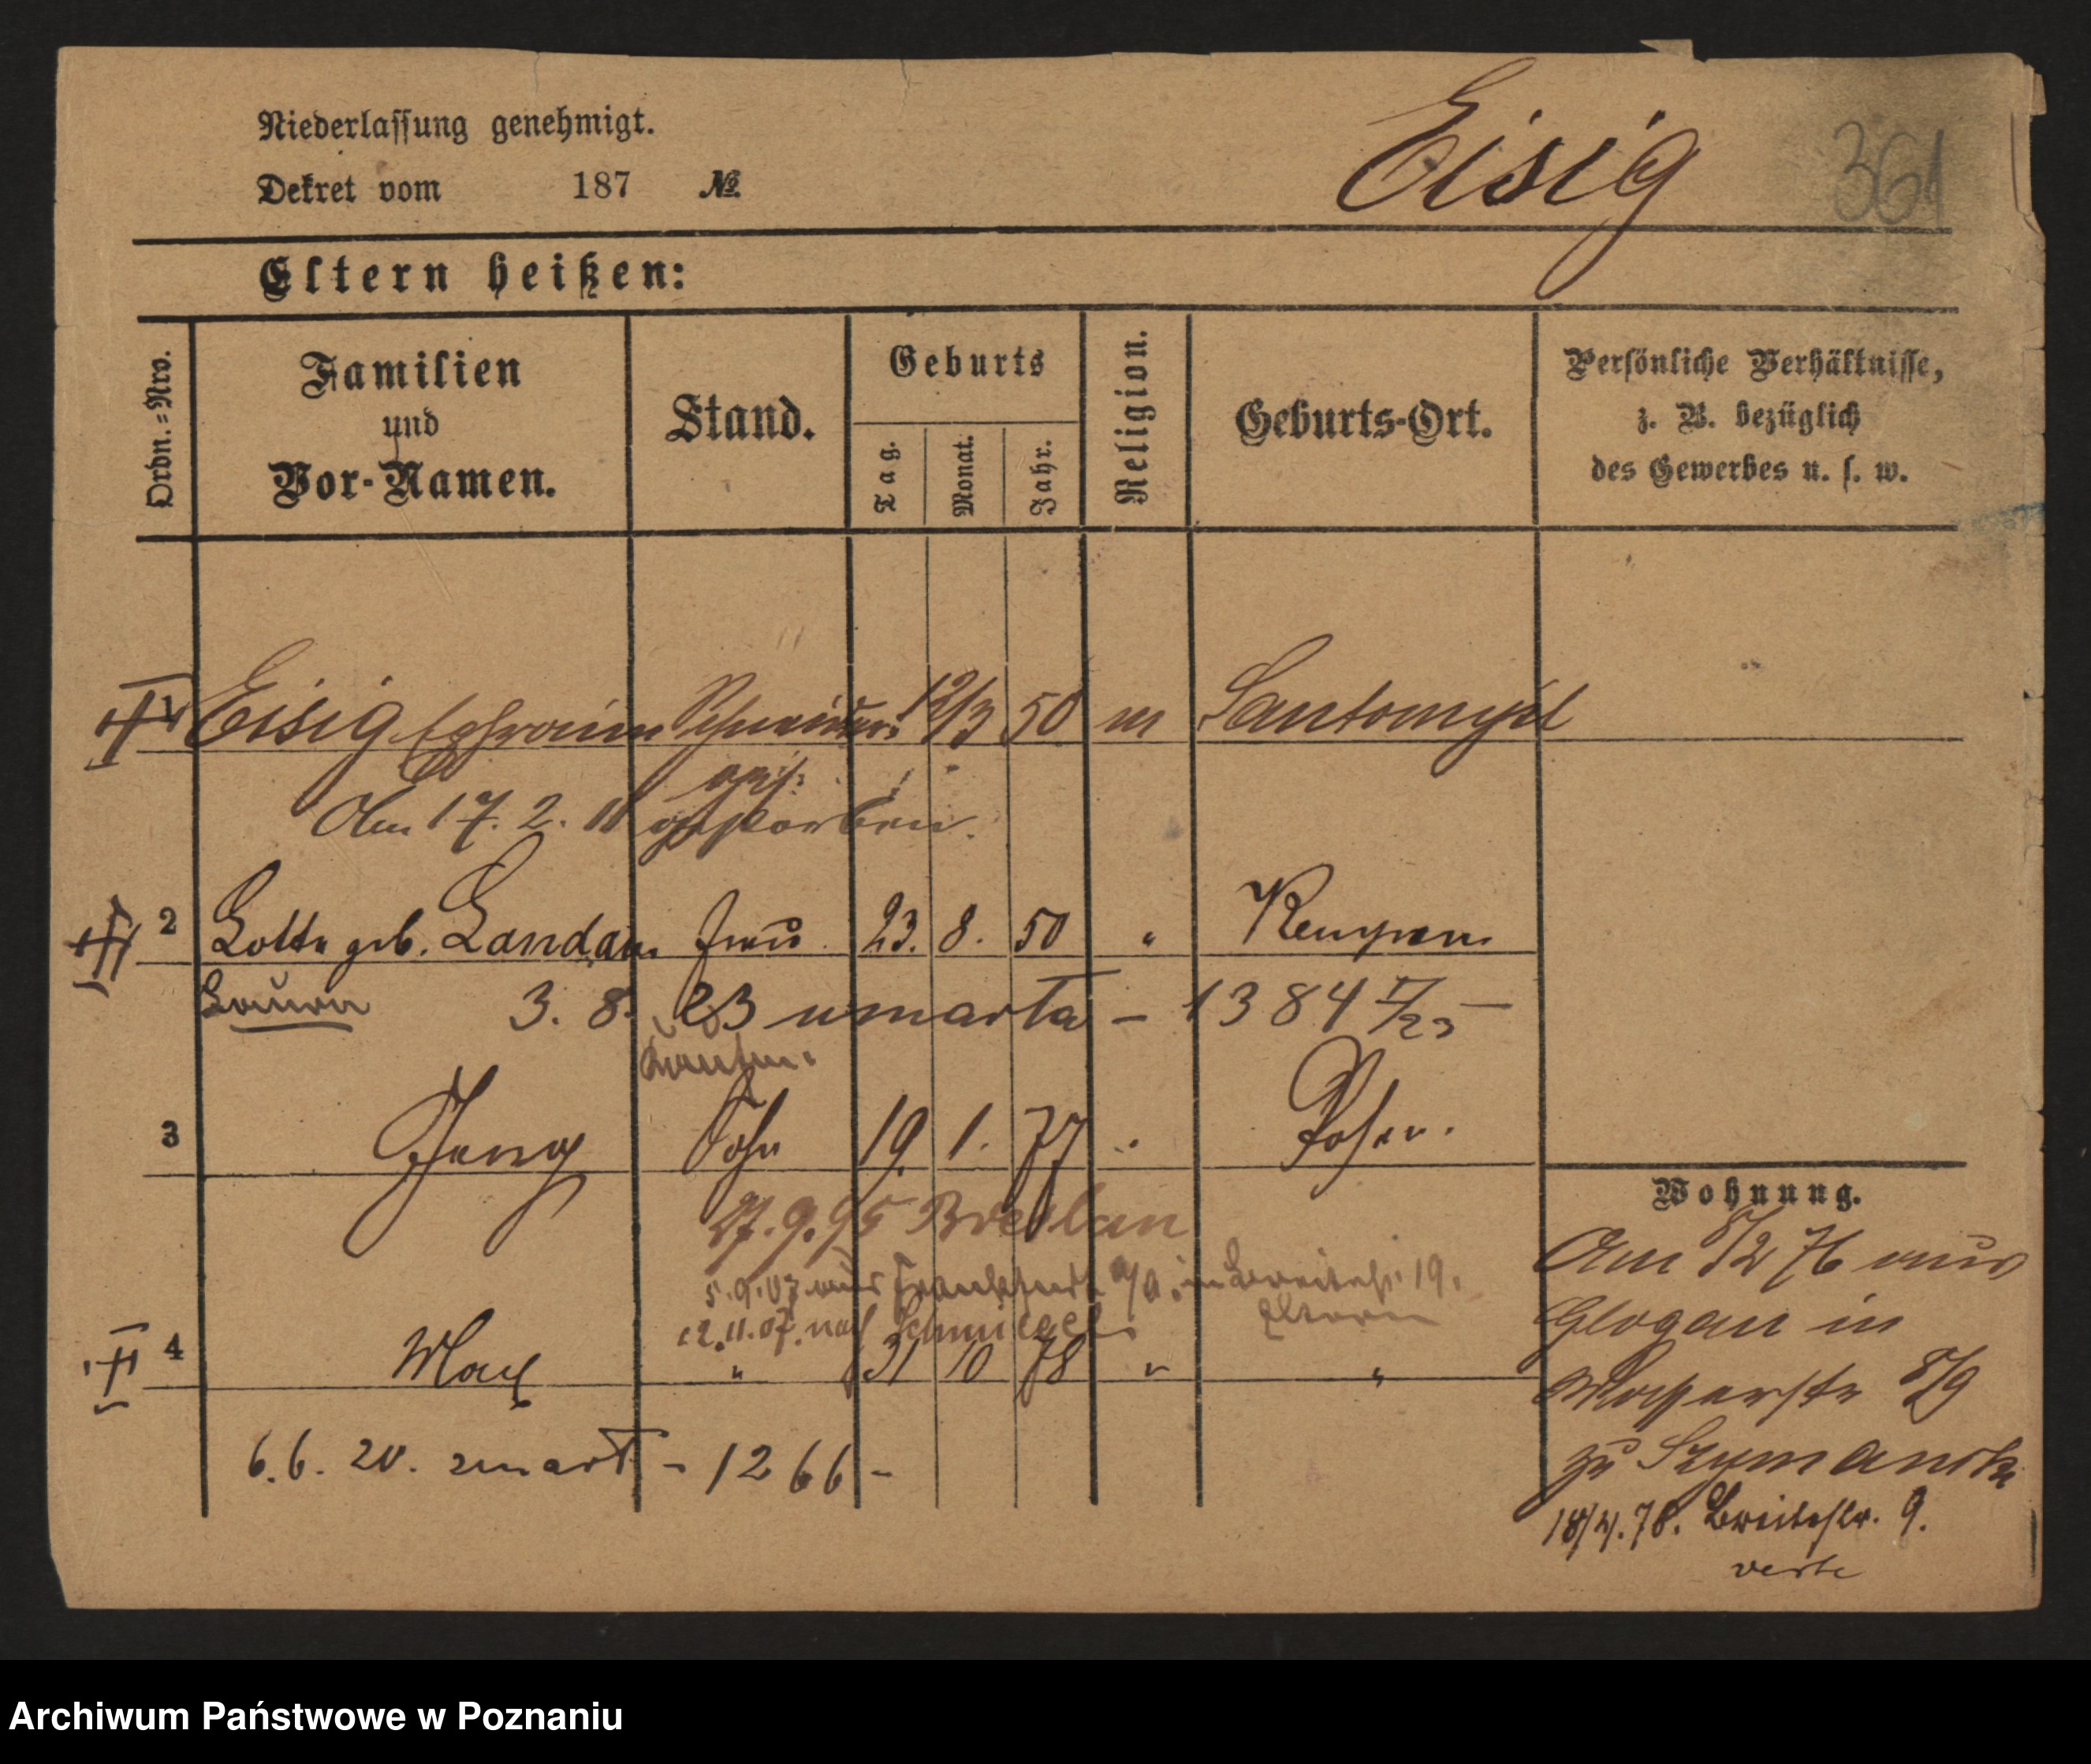 Niederlassung genehmigt.
Dekret vom 187 №
Eisig
361
Eltern heißen:
Ordn.=Nro.
Familien
und
Vor-Namen.
Stand.
Geburts
Tag.
Monat.
Jahr.
Religion.
Geburts-Ort.
Persönliche Verhältnisse,
z. B. bezüglich
des Gewerbes u. s. w.
1 Eisig Ephraim Schneider 12/3 50 m Santomysl
Am 17. 2. 11 gestorben.
2 Lotte geb. Landau Frau 23. 8. 50 " Kempen
Laura 3. 8. 23 umarła - 1384 V/23 -
3 Georg Sohn 19. 1. 77 " Posen.
27. 9. 95 Breslau
5. 9. 07 aus Frankfurt a/O. in Breitestr. 19.
Eltern
12. 11. 07. nach Schmiegel
4 Max " 31 10 78 " "
6. 6. 20. zmarł - 1266 -
Wohnung.
Am 8/2 76 aus
Glogau in
Wasserstr 8/9
zu Szymanski
18/4. 78. Breitestr. 9.
verte
Archiwum Państwowe w Poznaniu